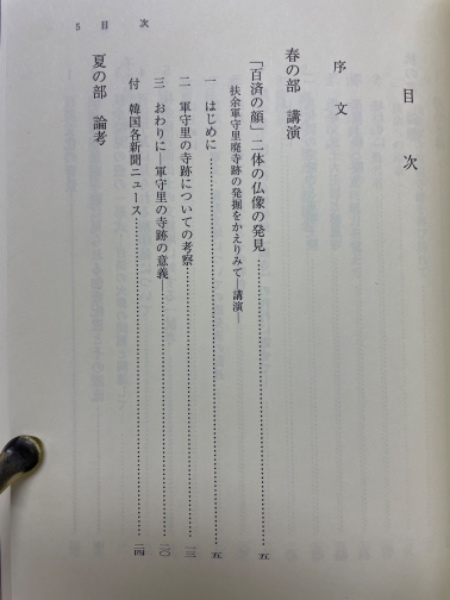 5 目次
目次
序文
春の部 講演
「百済の顔」二体の仏像の発見……五
扶余軍守里廃寺跡の発掘をかえりみて―講演―
一 はじめに……五
二 軍守里の寺跡についての考察……一三
三 おわりに―軍守里の寺跡の意義―……二〇
付 韓国各新聞ニュース……二四
夏の部 論考